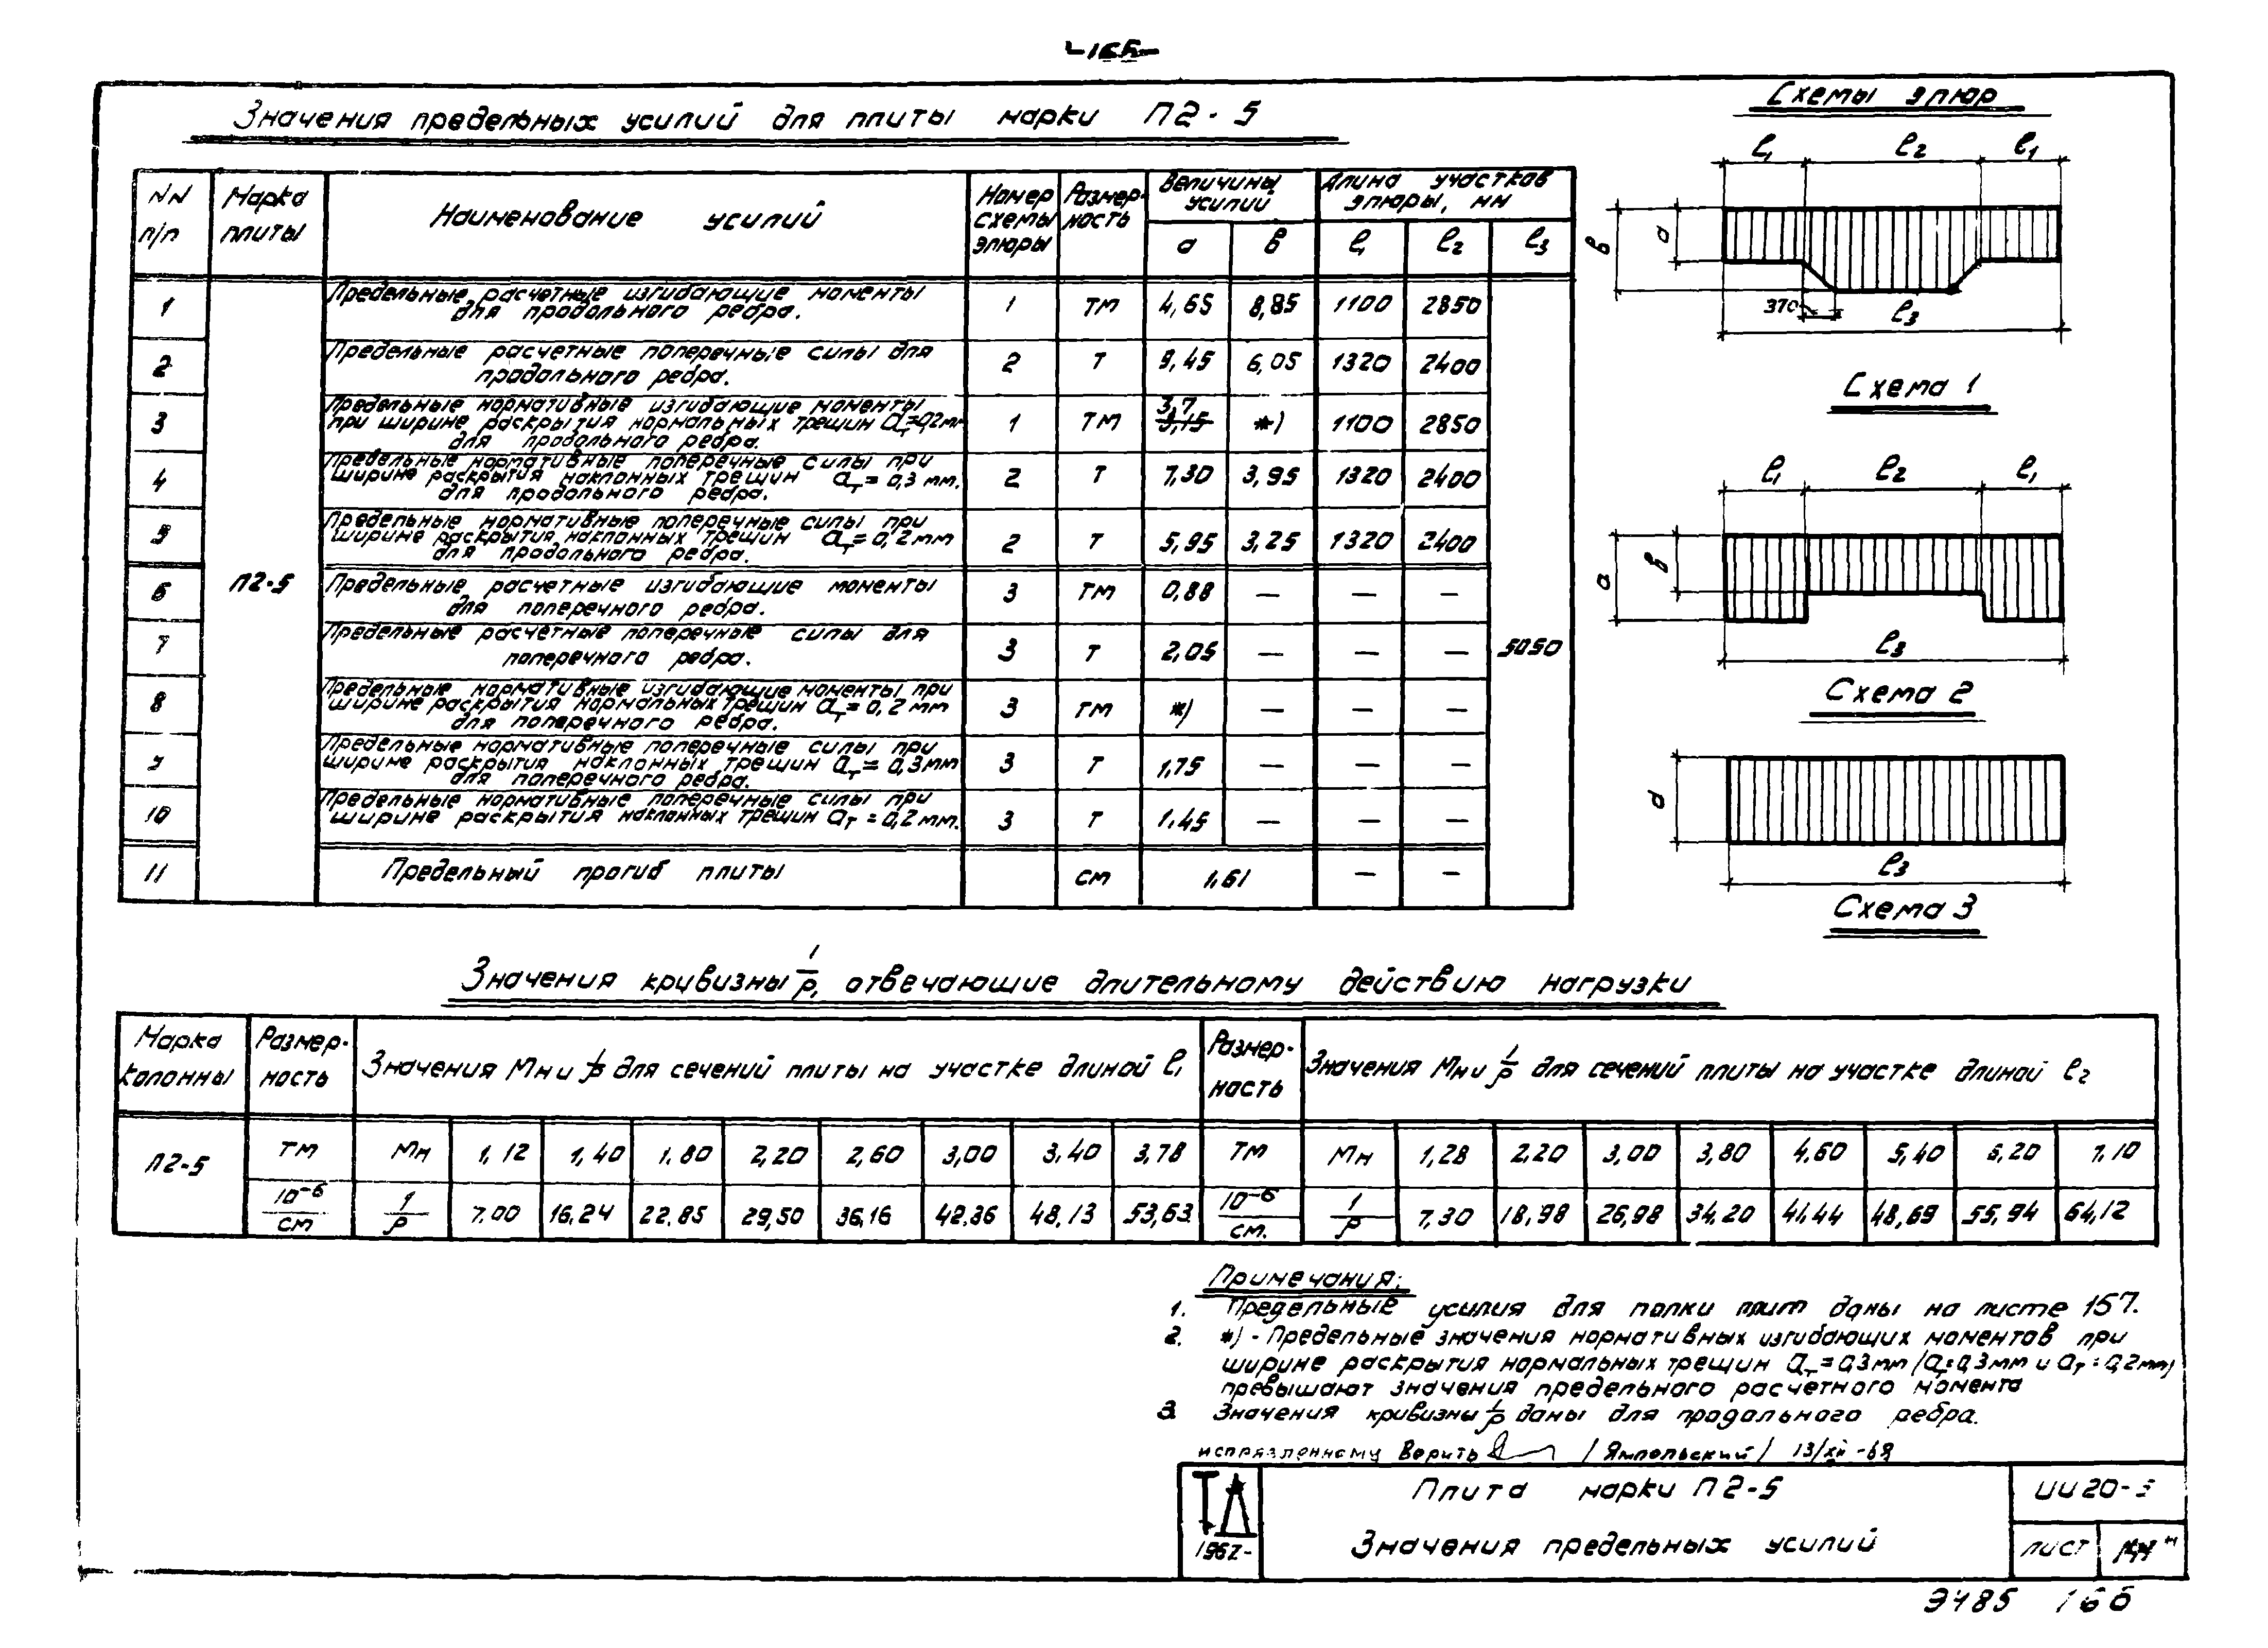 Значения предельных усилий для плиты марки П2-5
Схемы эпюр
NN п/п | Марка плиты | Наименование усилий | Номер схемы эпюры | Размер-ность | Величины усилий | Длина участков эпюры, мм
а | в | ℓ1 | ℓ2 | ℓ3
1 | Предельные расчетные изгибающие моменты для продольного ребра. | 1 | тм | 4,65 | 8,85 | 1100 | 2850
2 | Предельные расчетные поперечные силы для продольного ребра. | 2 | т | 9,45 | 6,05 | 1320 | 2400
3 | Предельные нормативные изгибающие моменты при ширине раскрытия нормальных трещин aт=0,2мм для продольного ребра. | 1 | тм | 3,7 | *) | 1100 | 2850
4 | Предельные нормативные поперечные силы при ширине раскрытия наклонных трещин aт=0,3 мм. для продольного ребра. | 2 | т | 7,30 | 3,95 | 1320 | 2400
5 | Предельные нормативные поперечные силы при ширине раскрытия наклонных трещин aт=0,2мм для продольного ребра. | 2 | т | 5,95 | 3,25 | 1320 | 2400
П2-5
6 | Предельные расчетные изгибающие моменты для поперечного ребра. | 3 | тм | 0,88 | — | — | —
7 | Предельные расчетные поперечные силы для поперечного ребра. | 3 | т | 2,05 | — | — | — | 5050
8 | Предельные нормативные изгибающие моменты при ширине раскрытия нормальных трещин aт=0,2мм для поперечного ребра. | 3 | тм | *) | — | — | —
9 | Предельные нормативные поперечные силы при ширине раскрытия наклонных трещин aт=0,3мм для поперечного ребра. | 3 | т | 1,75 | — | — | —
10 | Предельные нормативные поперечные силы при ширине раскрытия наклонных трещин aт=0,2мм. | 3 | т | 1.45 | — | — | —
11 | Предельный прогиб плиты | см | 1,61 | — | —
ℓ1 ℓ2 ℓ1
в а
370 ℓ3
Схема 1
ℓ1 ℓ2 ℓ1
а в
ℓ3
Схема 2
а
ℓ3
Схема 3
Значения кривизны 1/ρ, отвечающие длительному действию нагрузки
Марка колонны | Размер-ность | Значения Мн и 1/ρ для сечений плиты на участке длиной ℓ1 | Размер-ность | Значения Мн и 1/ρ для сечений плиты на участке длиной ℓ2
П2-5 | тм | Мн | 1,12 | 1,40 | 1,80 | 2,20 | 2,60 | 3,00 | 3,40 | 3,78 | тм | Мн | 1,28 | 2,20 | 3,00 | 3,80 | 4,60 | 5,40 | 6,20 | 7,10
10⁻⁶/см | 1/ρ | 7,00 | 16,24 | 22,85 | 29,50 | 36,16 | 42,36 | 48,13 | 53,63 | 10⁻⁶/см. | 1/ρ | 7,30 | 18,98 | 26,98 | 34,20 | 41,44 | 48,69 | 55,94 | 64,12
Примечания:
1. Предельные усилия для полки плит даны на листе 157.
2. *) - Предельные значения нормативных изгибающих моментов при
ширине раскрытия нормальных трещин aт=0,3мм /aт=0,3мм и aт=0,2мм/
превышают значения предельного расчетного момента
3 Значения кривизны 1/ρ даны для продольного ребра.
исправленному Верить /Ямпольский/ 13/XII-69
ТД
Плита марки П2-5
Значения предельных усилий
ИИ20-3
лист